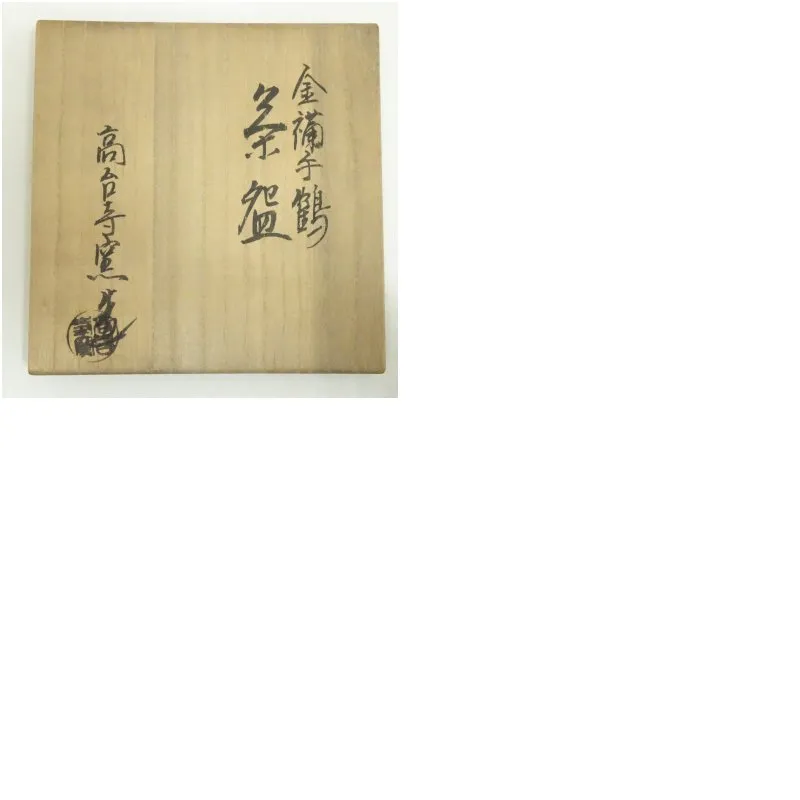 金襴手鶴
茶盌
高台寺窯